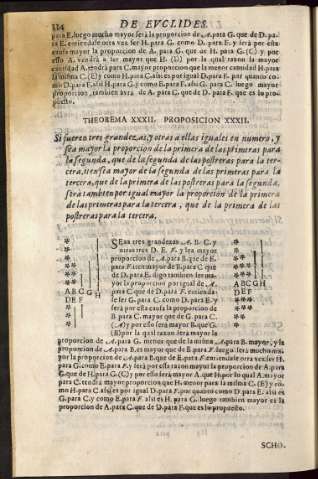 114 DE EVCLIDES.
para E. luego mucho mayor será la proporcion de A. para G. que de D. pa-
ra E. entiendase otra vez ser H. para G. como D. para E. y será por esta
causa mayor la proporcion de A. para G. que de H. para G. (C) y por
esso A. vendrá a ser mayor que H. (D) por lo qual tanto la mayor
cantidad A. tendrá para C. mayor proporcion que la menor cantidad H. para
la misma C. (E) y como H. para C. assi es por igual D. para F. por quanto co-
mo D. para E. assi H. para G. y como E. para F. assi G. para C. luego mayor
proporcion, tambien aurá de A. para C. que de D. para F. que es lo pro-
puesto.
THEOREMA XXXII. PROPOSICION XXXII.
Si fueren tres grandezas; y otras a ellas iguales en numero, y
sea mayor la proporcion de la primera de las primeras para
la segunda, que de la segunda de las postreras para la ter-
cera, item sea mayor de la segunda de las primeras para la
tercera, que de la primera de las postreras para la segunda,
será tambien por igual mayor la proporcion de la primera
de las primeras para la tercera, que de la primera de las
postreras para la tercera,
SEan tres grandezas A. B. C. y
otras tres D. E. F. y sea mayor
proporcion de A. para B. que de E.
para F. item mayor de B. para C. que
de D. para E. digo tambien ser ma-
yor la proporcion por igual de A.
para C. que de D. para F. entienda-
se ser G. para C. como D. para E. y
será por esta causa la proporcion de
B. para C. mayor que de G. para C.
(A) y por esso será mayor B. que G.
(B) por la qual razon será mayor la
A B C G H
D E F
A B C G H
D E F
proporcion de A. para G. menor que de la misma A. para B. mayor, y la
proporcion de A. para B. es mayor que de E. para F. luego será mucho ma-
yor la proporcion de A. para G. que de E. para F. entiendase otra vez ser H.
para G. como E. para F. y será por esta razon mayor la proporcion de A. para
G. que de H. para G. (C) y por esso será mayor A. que H. por lo qual A. mayor
para C. tendrá mayor proporcion que H. menor para la misma C. (E) y co-
mo H. para C. assi es por igual D. para F. por quanto como D. para E. assi es
G. para C. y como E. para F. assi es H. para G. luego tambien mayor es la
proporcion de A. para C. que de D. para F. que es lo propuesto.
SCHO.